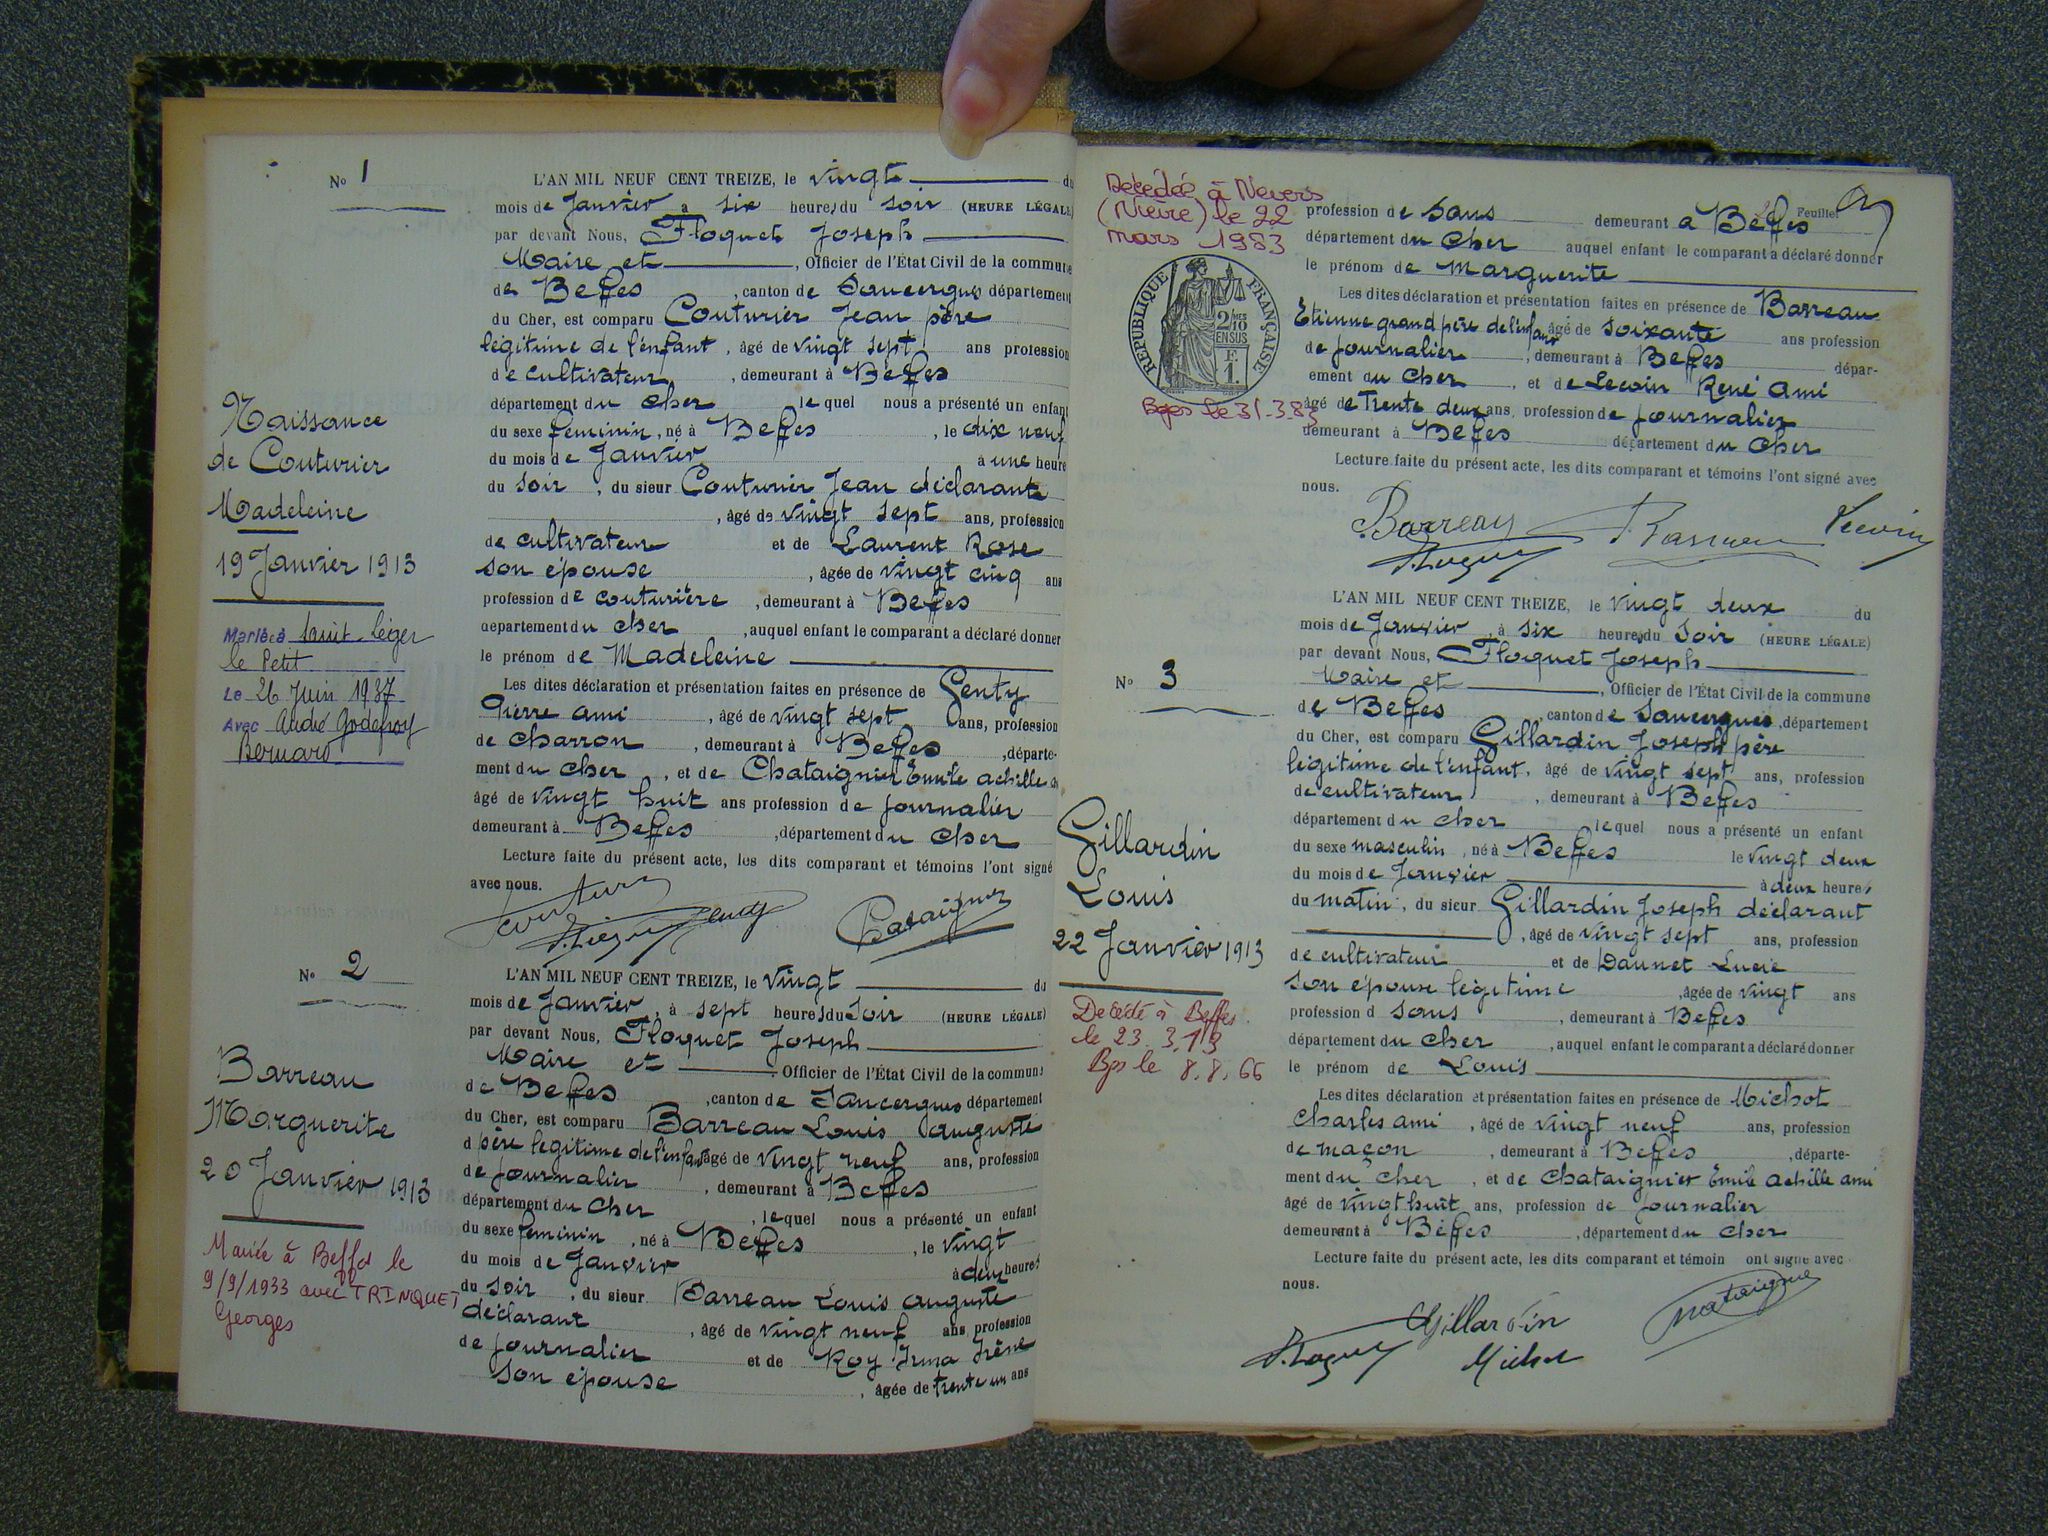 No 1
Naissance
de Couturier
Madeleine
19 Janvier 1913
Mariée à Saint-Léger
le Petit
Le 26 Juin 1937
Avec André Godefroy
Bernard
L'AN MIL NEUF CENT TREIZE, le vingt du
mois de Janvier à six heures du soir (HEURE LÉGALE)
par devant Nous, Floquet Joseph
Maire et , Officier de l'État Civil de la commune
de Beffes , canton de Sancergues département
du Cher, est comparu Couturier Jean père
légitime de l'enfant , âgé de vingt sept ans profession
de cultivateur , demeurant à Beffes
département du Cher lequel nous a présenté un enfant
du sexe féminin, né à Beffes , le dix neuf
du mois de Janvier à une heure
du soir , du sieur Couturier Jean déclarant
, âgé de vingt sept ans, profession
de cultivateur et de Laurent Rose
son épouse , âgée de vingt cinq ans
profession de couturière , demeurant à Beffes
département du Cher , auquel enfant le comparant a déclaré donner
le prénom de Madeleine
Les dites déclaration et présentation faites en présence de Genty
Pierre ami , âgé de vingt sept ans, profession
de charron , demeurant à Beffes , départe-
ment du Cher , et de Chataignier Emile achille
âgé de vingt huit ans profession de journalier
demeurant à Beffes , département du Cher
Lecture faite du présent acte, les dits comparant et témoins l'ont signé
avec nous.
No 2
Barreau
Marguerite
20 Janvier 1913
Mariée à Beffes le
9/9/1933 avec TRINQUET
Georges
L'AN MIL NEUF CENT TREIZE, le vingt du
mois de Janvier, à sept heures du Soir (HEURE LÉGALE)
par devant Nous, Floquet Joseph
Maire et Officier de l'État Civil de la commune
de Beffes , canton de Sancergues département
du Cher, est comparu Barreau Louis auguste
d père légitime de l'enfant âgé de vingt neuf ans, profession
de journalier , demeurant à Beffes
département du Cher , lequel nous a présenté un enfant
du sexe féminin , né à Beffes , le vingt
du mois de Janvier à deux heures
du soir , du sieur Barreau Louis auguste
déclarant , âgé de vingt neuf ans, profession
de journalier et de Roy Irma Irène
son épouse , âgée de trente un ans
Décédée à Nevers
(Nièvre) le 22
mars 1983
RÉPUBLIQUE FRANÇAISE
2/10 EN SUS
F. 1.
Beffes le 31-3-83
Feuillet
profession de sans demeurant à Beffes
département du Cher auquel enfant le comparant a déclaré donner
le prénom de Marguerite
Les dites déclaration et présentation faites en présence de Barreau
Etienne grand père de l'enfant âgé de soixante ans profession
de journalier , demeurant à Beffes dépar-
ement du Cher , et de Lecoin René ami
âgé de Trente deux ans, profession de journalier
demeurant à Beffes département du Cher
Lecture faite du présent acte, les dits comparant et témoins l'ont signé avec
nous.
Barreau Lecoin
No 3
Gillardin
Louis
22 Janvier 1913
Décédé à Beffes
le 23.3.13
Bges le 8.8.66
L'AN MIL NEUF CENT TREIZE, le vingt deux du
mois de Janvier, à six heures du Soir (HEURE LÉGALE)
par devant Nous, Floquet Joseph
Maire et , Officier de l'État Civil de la commune
de Beffes , canton de Sancergues, département
du Cher, est comparu Gillardin Joseph père
légitime de l'enfant, âgé de vingt sept ans, profession
de cultivateur , demeurant à Beffes
département du Cher lequel nous a présenté un enfant
du sexe masculin , né à Beffes le vingt deux
du mois de Janvier à deux heures
du matin, du sieur Gillardin Joseph déclarant
, âgé de vingt sept ans, profession
de cultivateur et de Daunet Lucie
son épouse légitime , âgée de vingt ans
profession d sans , demeurant à Beffes
département du Cher , auquel enfant le comparant a déclaré donner
le prénom de Louis
Les dites déclaration et présentation faites en présence de Michot
Charles ami , âgé de vingt neuf ans, profession
de maçon , demeurant à Beffes , départe-
ment du Cher , et de Chataignier Emile achille ami
âgé de vingt huit ans, profession de Journalier
demeurant à Beffes , département du Cher
Lecture faite du présent acte, les dits comparant et témoin ont signé avec
nous.
Gillardin
Michot